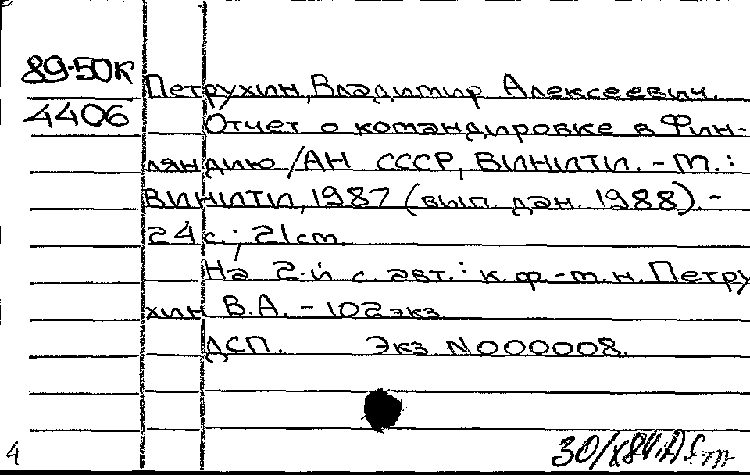 89-50к
Петрухин, Владимир Алексеевич.
4406
Отчет о командировке в Фин-
ляндию /АН СССР, ВИНИТИ. - М.:
ВИНИТИ, 1987 (вып. дан. 1988). -
24 с.; 21 cm.
На 2-й с. авт.: к.ф.-м.н. Петру
хин В.А. - 102 экз
ДСП. Экз. N000008.
4